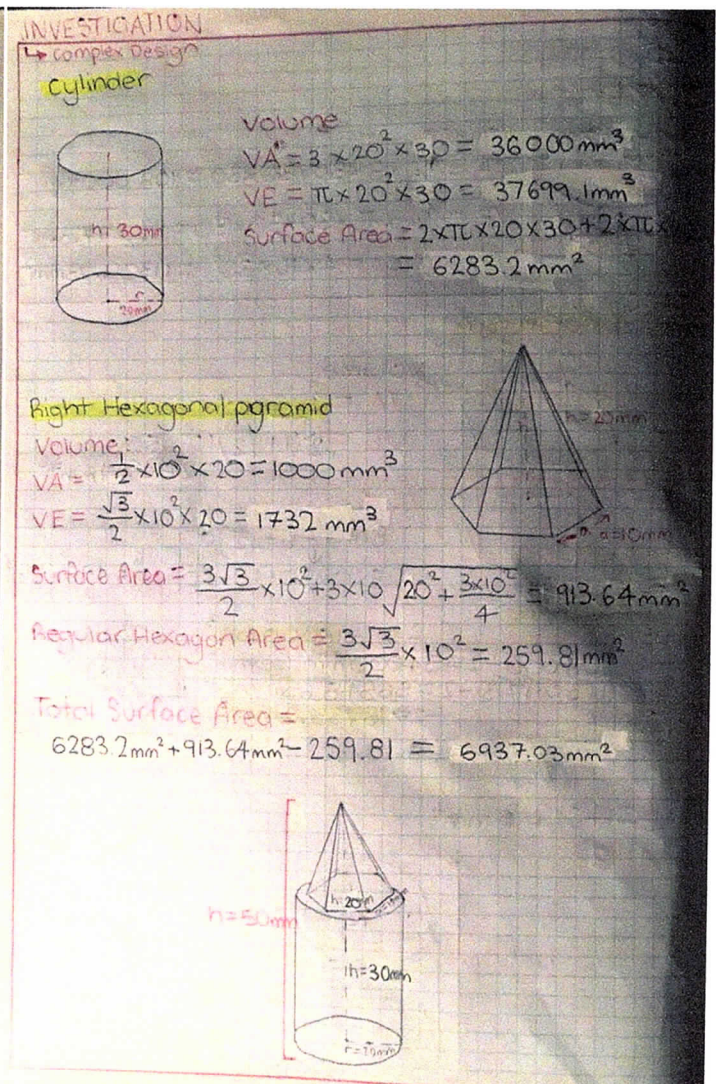 INVESTIGATION
↳ complex Design
Cylinder
Volume
VA = 3 × 20² × 30 = 36000 mm³
VE = π × 20² × 30 = 37699.1mm³
Surface Area = 2×π×20×30+2×π×
= 6283.2 mm²
h= 30mm
r
20mm
Right Hexagonal pyramid
Volume:
VA = 1/2 ×10² × 20 = 1000 mm³
VE = √3/2 ×10² × 20 = 1732 mm³
h=20mm
a=10mm
Surface Area = 3√3/2 ×10²+3×10 √(20²+ 3×10²/4) = 913.64mm²
Regular Hexagon Area = 3√3/2 × 10² = 259.81mm²
Total Surface Area =
6283.2mm²+913.64mm²- 259.81 = 6937.03mm²
h=20m
h=50mm
h=30mm